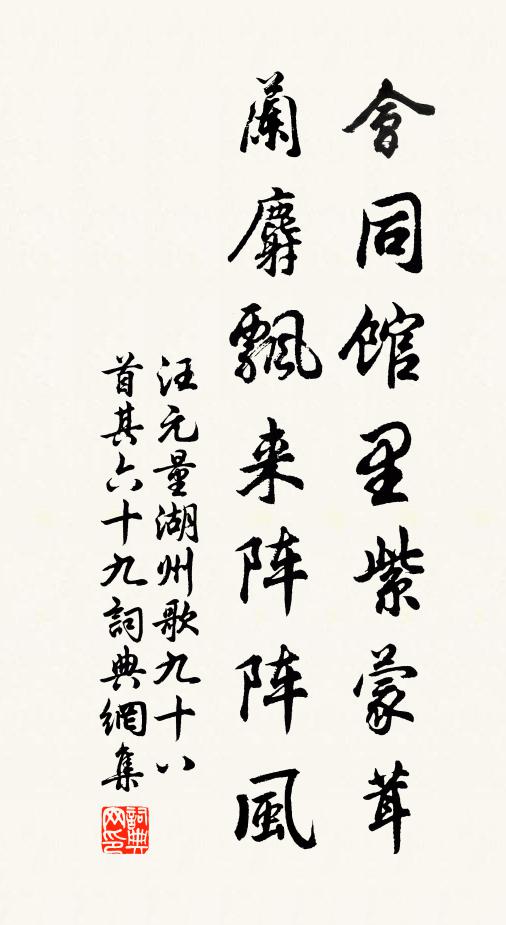 會同馆里紫蒙茸
蘭麝飄来阵阵風
汪元量湖州歌九十八
首其六十九詞典網集
詞典网印